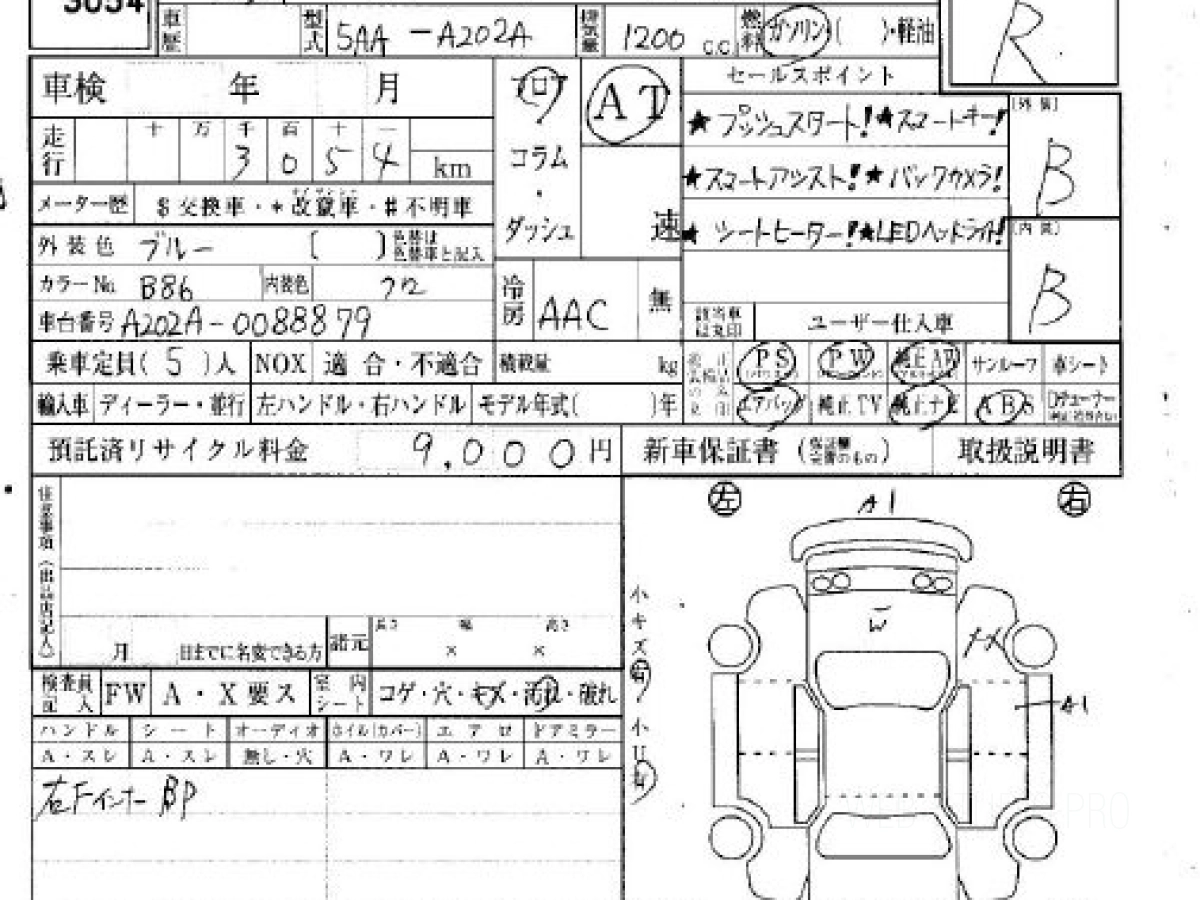 3054
車歴 型式 5AA-A202A 排気量 1200 C.C 燃料 ガソリン( )・軽油
R
車検 年 月 フロア AT セールスポイント
走行 十 万 千 百 十 一
3 0 5 4 km
コラム・ダッシュ 速
★プッシュスタート!★スマートキー!
★スマートアシスト!★バックカメラ!
★シートヒーター!★LEDヘッドライト!
[外装] B
[内装] B
メーター歴 $交換車・*改竄車・#不明車
外装色 ブルー [ ] 色替は色替車と記入
カラーNo. B86 内装色 クロ
車台番号 A202A-0088879
冷房 AAC 無
該当車は丸印 ユーザー仕入車
乗車定員( 5 )人 NOX 適合・不適合 積載量 kg
PS PW 純正AW サンルーフ 革シート
輸入車 ディーラー・並行 左ハンドル・右ハンドル モデル年式( )年
エアバッグ 純正TV 純正ナビ ABS
預託済リサイクル料金 9,000円 新車保証書 取扱説明書
注意事項(出品店記入)
月 日までに名変できる方 諸元 長さ × 幅 × 高さ
検査員記入 FW A・X要ス 室内シート コゲ・穴・キズ・汚れ・破れ
ハンドル シート オーディオ ホイル(カバー) エアロ ドアミラー
A・スレ A・スレ 無し・穴 A・ワレ A・ワレ A・ワレ
右Fインナー BP
左 右
A1
小キズ有 小U有
W
A1
PRO